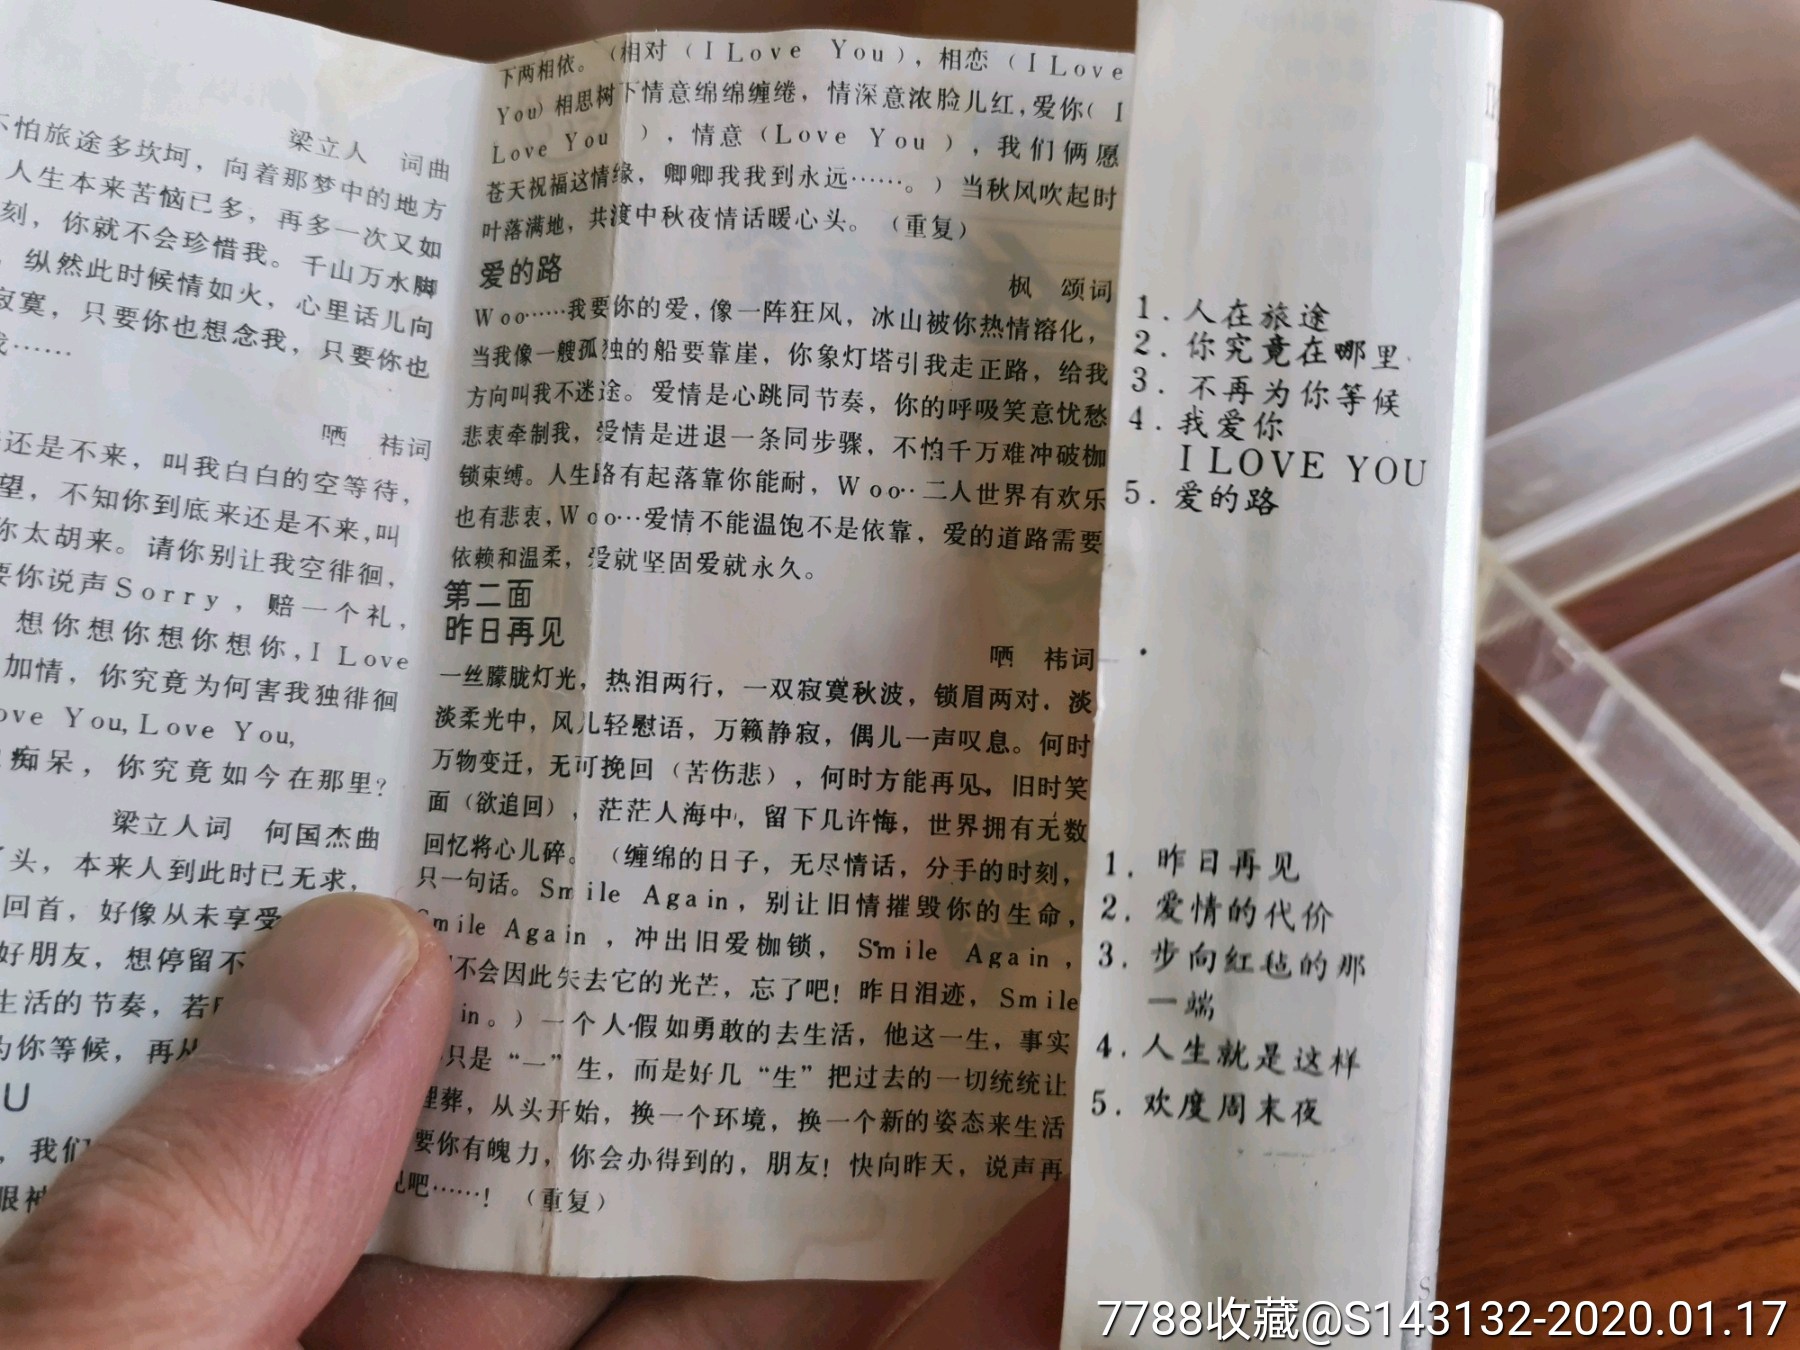 梁立人 词曲
不怕旅途多坎坷，向着那梦中的地方
人生本来苦恼已多，再多一次又如
刻，你就不会珍惜我。千山万水脚
，纵然此时候情如火，心里话儿向
寂寞，只要你也想念我，只要你也
我……
哂 祎词
还是不来，叫我白白的空等待，
望，不知你到底来还是不来，叫
你太胡来。请你别让我空徘徊，
要你说声Sorry，赔一个礼，
想你想你想你想你，I Love
加情，你究竟为何害我独徘徊
ove You,Love You,
痴呆，你究竟如今在那里？
梁立人词 何国杰曲
头，本来人到此时已无求，
回首，好像从未享受
好朋友，想停留不
生活的节奏，若
为你等候，再从
U
，我们
眼神
下两相依。（相对（I Love You），相恋（I Love
You）相思树下情意绵绵缠绻，情深意浓脸儿红，爱你（I
Love You），情意（Love You），我们俩愿
苍天祝福这情缘，卿卿我我到永远……。）当秋风吹起时
叶落满地，共渡中秋夜情话暖心头。（重复）
爱的路
枫 颂词
Woo……我要你的爱，像一阵狂风，冰山被你热情溶化，
当我像一艘孤独的船要靠崖，你象灯塔引我走正路，给我
方向叫我不迷途。爱情是心跳同节奏，你的呼吸笑意忧愁
悲衷牵制我，爱情是进退一条同步骤，不怕千万难冲破枷
锁束缚。人生路有起落靠你能耐，Woo··二人世界有欢乐
也有悲衷，Woo…爱情不能温饱不是依靠，爱的道路需要
依赖和温柔，爱就坚固爱就永久。
第二面
昨日再见
哂 祎词
一丝朦胧灯光，热泪两行，一双寂寞秋波，锁眉两对．淡
淡柔光中，风儿轻慰语，万籁静寂，偶儿一声叹息。何时
万物变迁，无可挽回（苦伤悲），何时方能再见，旧时笑
面（欲追回），茫茫人海中，留下几许悔，世界拥有无数
回忆将心儿碎。（缠绵的日子，无尽情话，分手的时刻，
只一句话。Smile Again，别让旧情摧毁你的生命，
Smile Again，冲出旧爱枷锁，Smile Again，
不会因此失去它的光芒，忘了吧！昨日泪迹，Smile
in。）一个人假如勇敢的去生活，他这一生，事实
只是“一”生，而是好几“生”把过去的一切统统让
埋葬，从头开始，换一个环境，换一个新的姿态来生活
要你有魄力，你会办得到的，朋友！快向昨天，说声再
见吧……！（重复）
1．人在旅途
2．你究竟在哪里
3．不再为你等候
4．我爱你
I LOVE YOU
5．爱的路
1．昨日再见
2．爱情的代价
3．步向红毡的那
一端
4．人生就是这样
5．欢度周末夜
7788收藏@S143132-2020.01.17